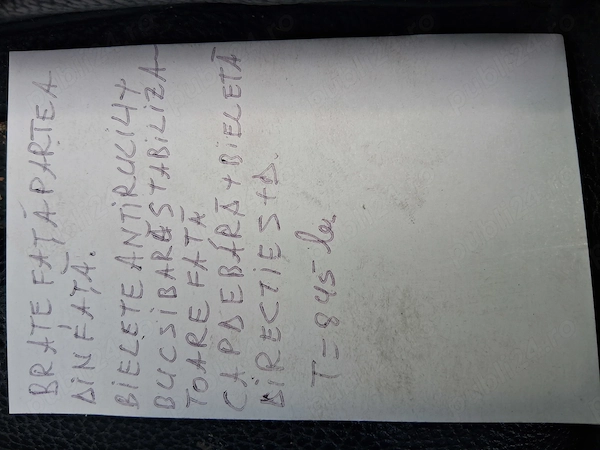 BRATE FAȚĂ PARTEA
DIN FAȚĂ.
BIELETE ANTIRULIU +
BUCSI BARĂ STABILIZA-
TOARE FAȚĂ
CAP DE BARĂ + BIELETĂ
DIRECTIE S+D.
T = 845 lei